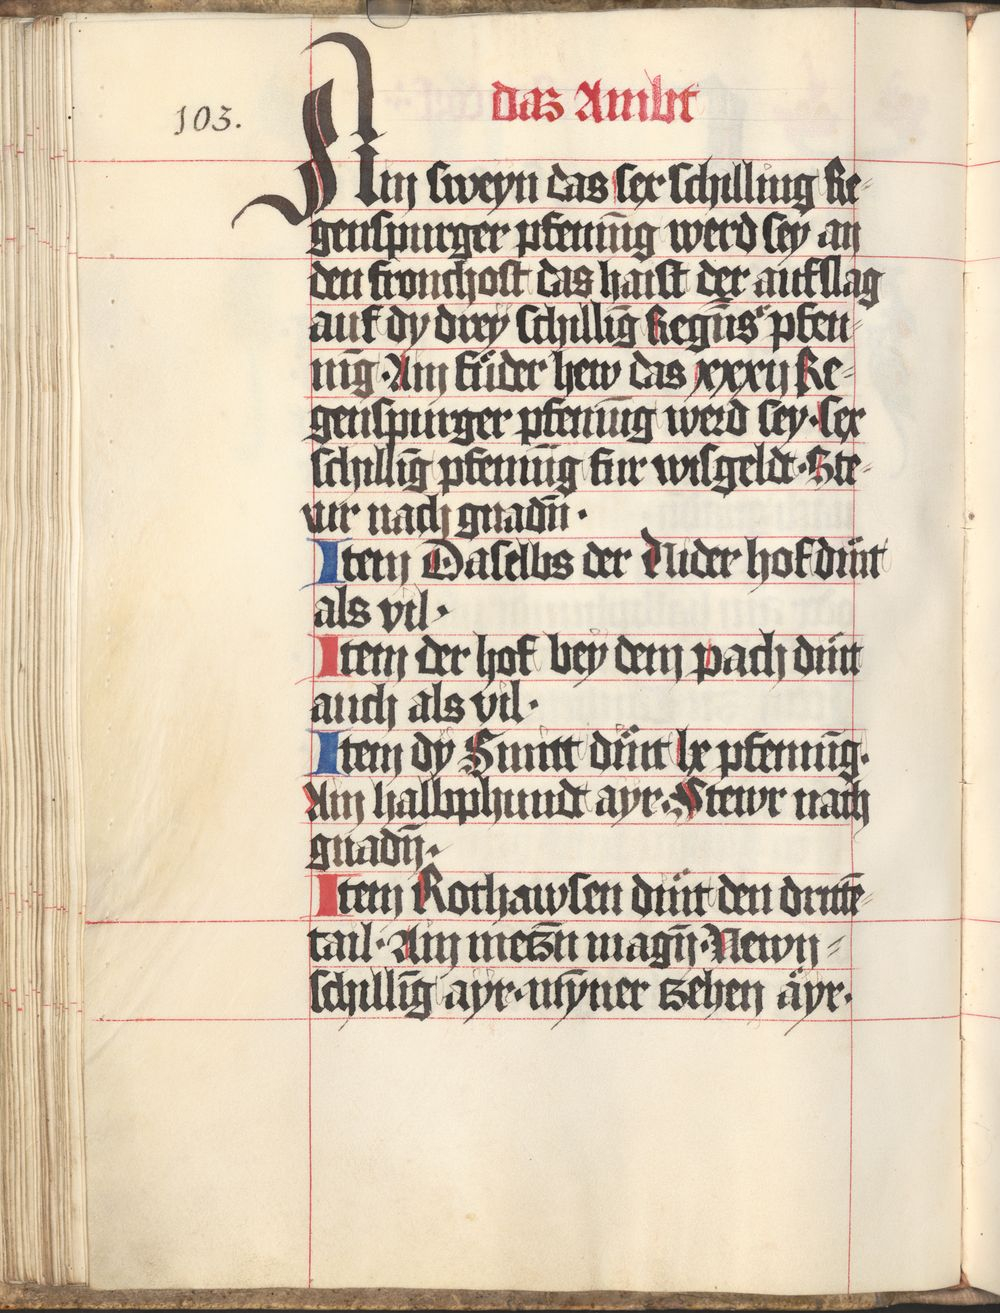 103.
das Ambt
Ain sweyn das sex schilling Re-
genspurger pfenīng werd sey an
den fronchost das haist der aufslag
auf dy drey schillīg Regn̄s pfen-
nīg · Ain füder hew das xxxij Re-
genspurger pfenīng werd sey · sex
schillīg pfenning fur wisgeldt · Ste-
wr nach gnadn̄ ·
Item Daselbs der Nider hof dint
als vil ·
Item der hof bey dem pach dint
auch als vil ·
Item dy dint lx pfenīng ·
Ain halbphundt ayr · Stewr nach
gnadn̄ ·
Item Rothawsen dint den dritt-
tail · Ain metzn̄ magn̄ · Newn
schillīg ayr · myner zehen äyr ·